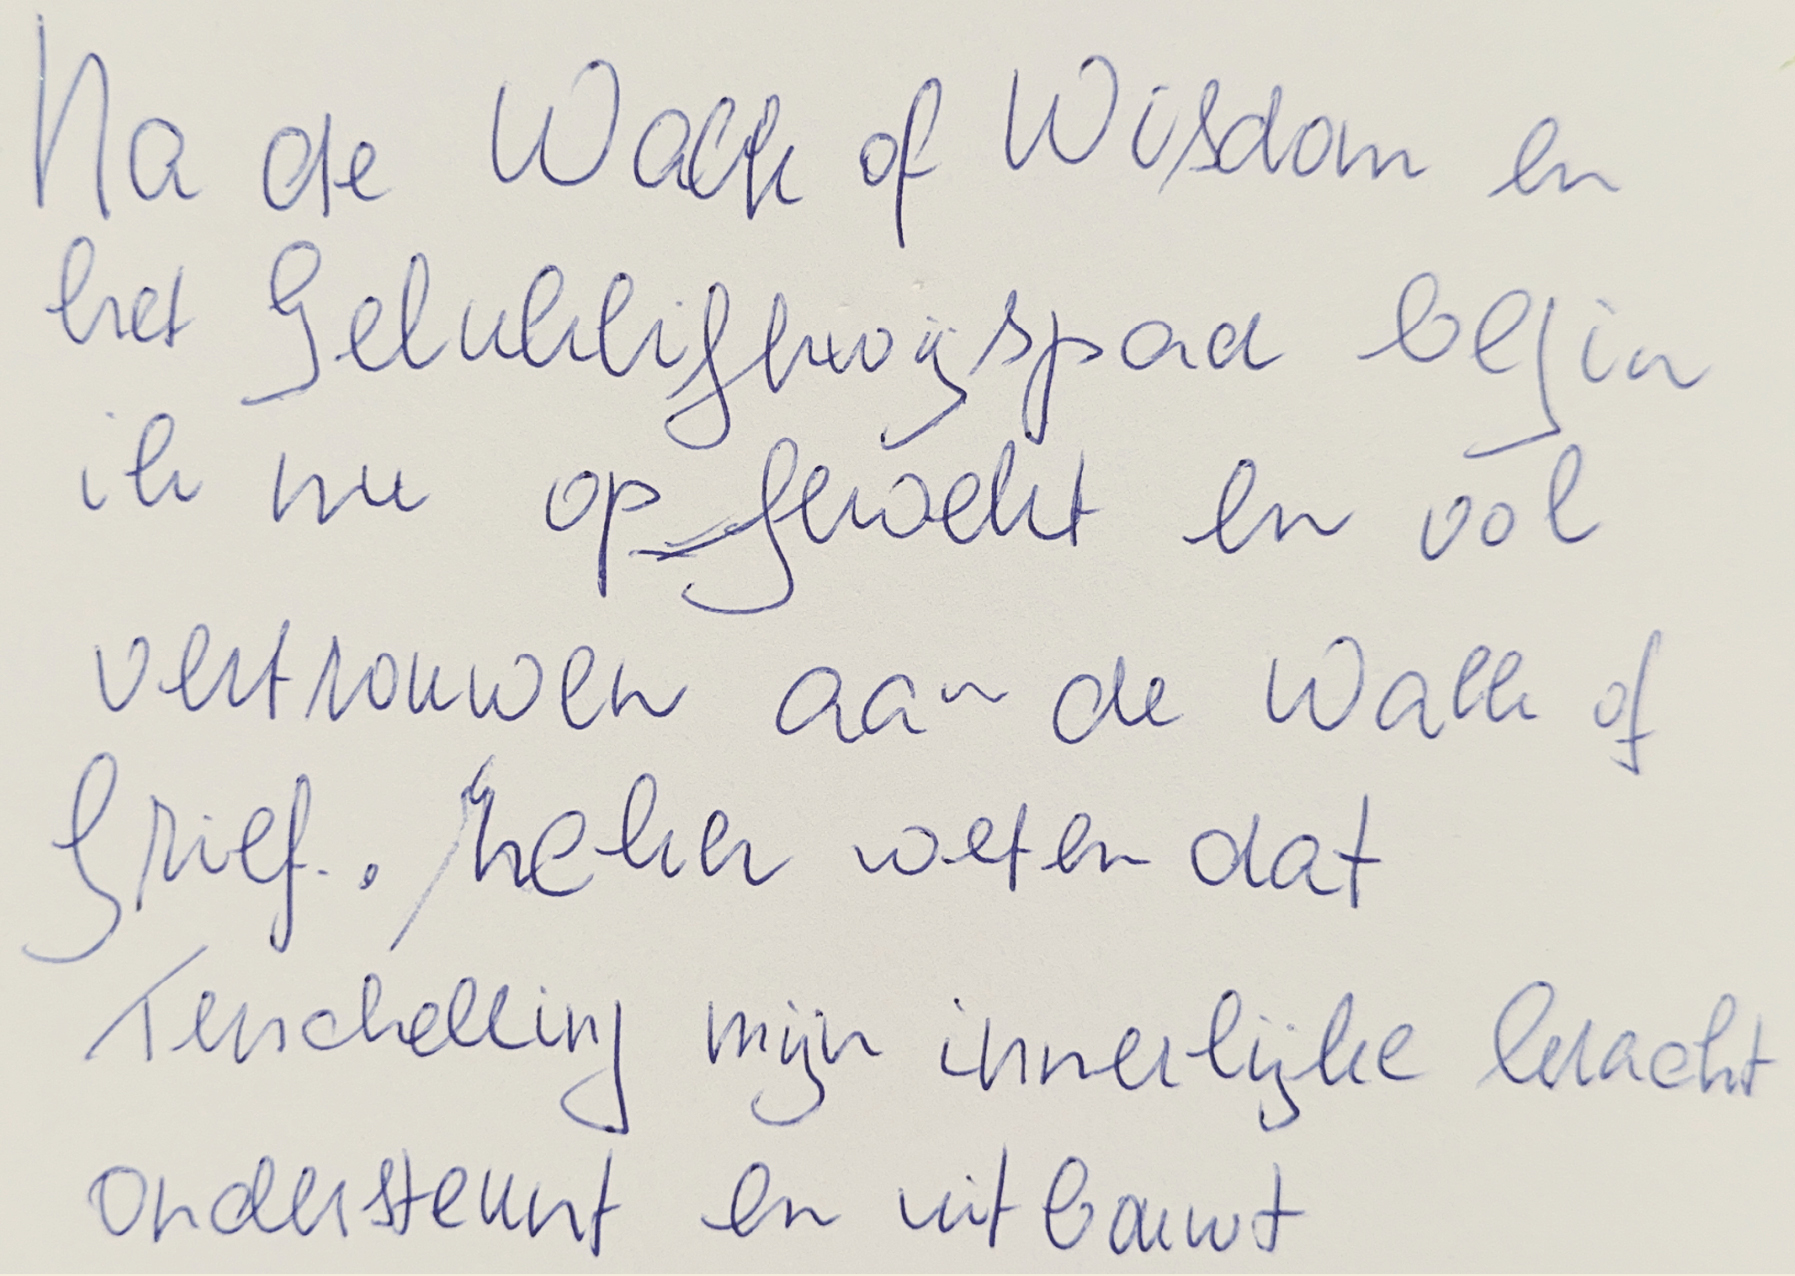 Na de Walk of Wisdom en
het Gelukkigerwijspad begin
ik nu opgewekt en vol
vertrouwen aan de Walk of
Grief. Zeker weten dat
Terschelling mijn innerlijke kracht
ondersteunt en uitbouwt